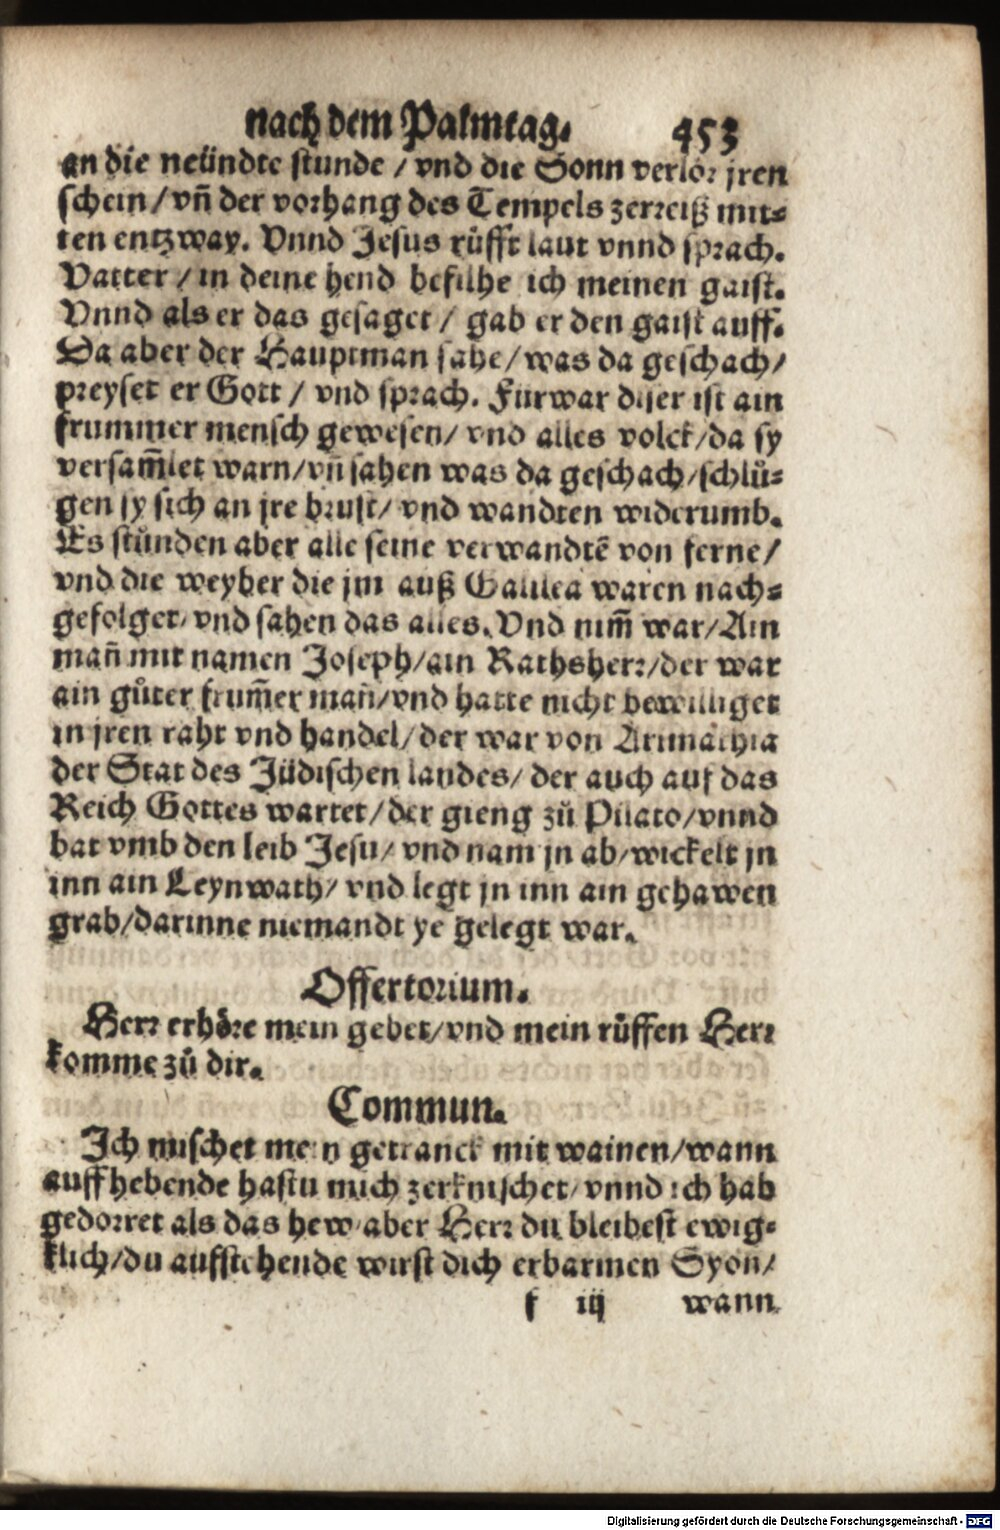 nach dem Palmtag. 453
an die neündte stunde / vnd die Sonn verlor jren
schein / vñ der vorhang des Tempels zerreiß mit-
ten entzway. Vnnd Jesus rüfft laut vnnd sprach.
Vatter / in deine hend befilhe ich meinen gaist.
Vnnd als er das gesaget / gab er den gaist auff.
Da aber der Hauptman sahe / was da geschach /
preyset er Gott / vnd sprach. Fürwar diser ist ain
frummer mensch gewesen / vnd alles volck / da sy
versam̃let warn / vñ sahen was da geschach / schlů-
gen sy sich an jre brust / vnd wandten widerumb.
Es stůnden aber alle seine verwandtẽ von ferne /
vnd die weyber die jm auß Galilea waren nach-
gefolget / vnd sahen das alles. Vnd nim̃ war / Ain
mañ mit namen Joseph / ain Rathsherr / der war
ain gůter frum̃er mañ / vnd hatte nicht bewilliget
in jren raht vnd handel / der war von Arimathia
der Stat des Jüdischen landes / der auch auf das
Reich Gottes wartet / der gieng zů Pilato / vnnd
bat vmb den leib Jesu / vnd nam jn ab / wickelt jn
inn ain Leynwath / vnd legt jn inn ain gehawen
grab / darinne niemandt ye gelegt war.
Offertorium.
Herr erhöre mein gebet / vnd mein rüffen Herr
komme zů dir.
Commun.
Ich mischet mein getranck mit wainen / wann
auffhebende hastu mich zerknischet / vnnd ich hab
gedorret als das hew / aber Herr du bleibest ewig-
klich / du aufstehende wirst dich erbarmen Syon /
f iij wann
Digitalisierung gefördert durch die Deutsche Forschungsgemeinschaft - DFG